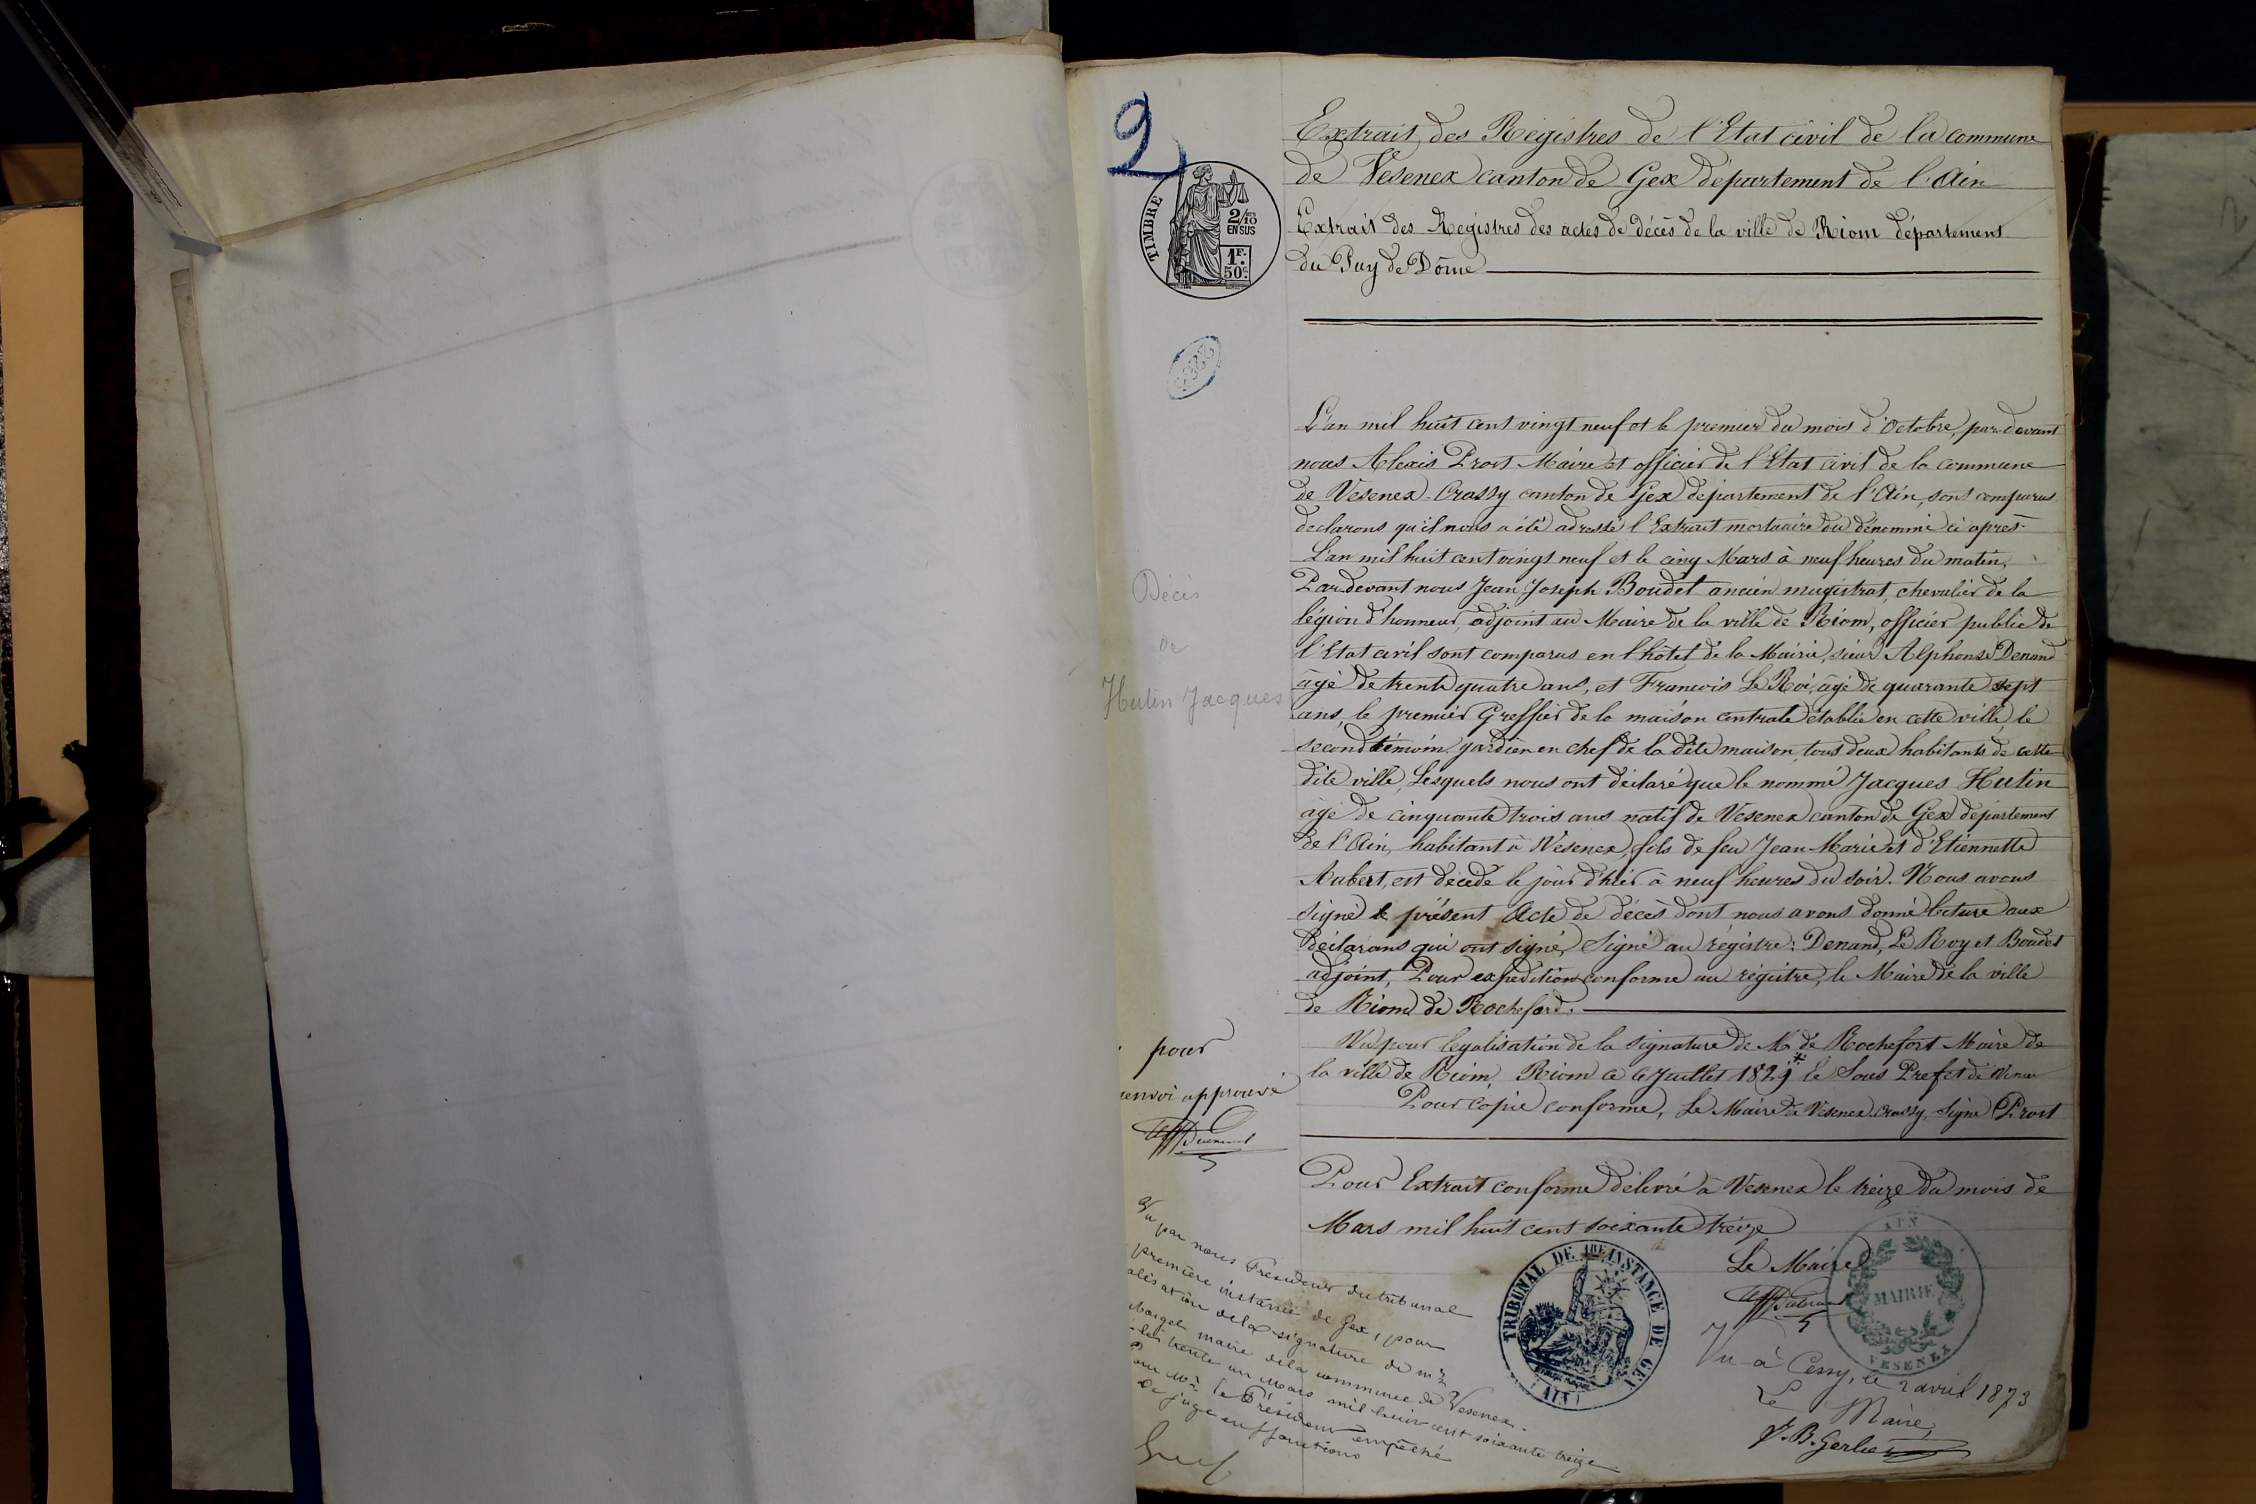 2
TIMBRE
2/10
EN SUS
1F.
50c.
Extrait des Régistres de l'Etat civil de la commune
de Vesenex canton de Gex département de l'Ain
Extrait des Régistres des actes de décès de la ville de Riom département
du Puy de Dôme
L'an mil huit cent vingt neuf et le premier du mois d'Octobre, par devant
nous Alexis Prost Maire et officier de l'Etat civil de la commune
de Vesenex-Crassy canton de Gex département de l'Ain, sont comparus
declarons qu'il nous a été adressé l'Extrait mortuaire du dénommé ci après.
L'an mil huit cent vingt neuf et le cinq Mars à neuf heures du matin,
Par devant nous Jean Joseph Boudet ancien magistrat, chevalier de la
légion d'honneur, adjoint au Maire de la ville de Riom, officier public de
l'Etat civil sont comparus en l'hôtel de la Mairie, sieur Alphonse Denand
âgé de trente quatre ans, et Francois Le Roi, âgé de quarante sept
ans, le premier Greffier de la maison centrale établie en cette ville, le
second témoin gardien en chef de la dite maison, tous deux habitants de cette
dite ville, Lesquels nous ont déclaré que le nommé Jacques Hutin
âgé de cinquante trois ans natif de Vesenex canton de Gex département
de l'Ain, habitant à Vesenex, fils de feu Jean Marie et d'Etiennette
Aubert, est décédé le jour d'hier à neuf heures du soir. Nous avons
signé le présent Acte de décès dont nous avons donné lecture aux
déclarans qui ont signé, Signé au régistre: Denand, Le Roy et Boudet
adjoint, Pour expédition conforme au régistre, le Maire de la ville
de Riom de Rochefort.
Vu pour legalisation de la signature de M. de Rochefort Maire de
la ville de Riom, Riom ce 6 Juillet 1829 * le Sous Prefet
Pour copie conforme, Le Maire de Vesenex-Crassy, signé Prost
Pour Extrait conforme délivré à Vesenex le treize du mois de
Mars mil huit cent soixante treize
Le Maire
AIN
MAIRIE
VESENEX
TRIBUNAL DE 1RE INSTANCE DE GEX
(AIN)
Vu à Cessy, le 2 avril 1873
Le Maire,
J. B. Gerlier
Décès
de
Hutin Jacques
pour
renvoi approuvé
Vu par nous Président du tribunal
première instance de Gex, pour
alisation de la signature de mr
maire de la commune de Vesenex.
le trente un Mars mil huit cent soixante treize
Pour Mr le Président empêché
Le juge en fonctions